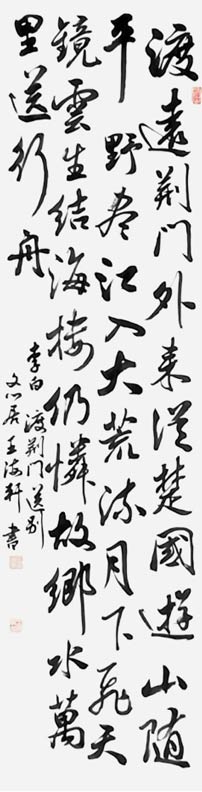 渡遠荆門外来從楚國遊山随
平野尽江入大荒流月下飛天
鏡雲生結海楼仍憐故鄉水萬
里送行舟
李白渡荆門送别
文心居王海軒書